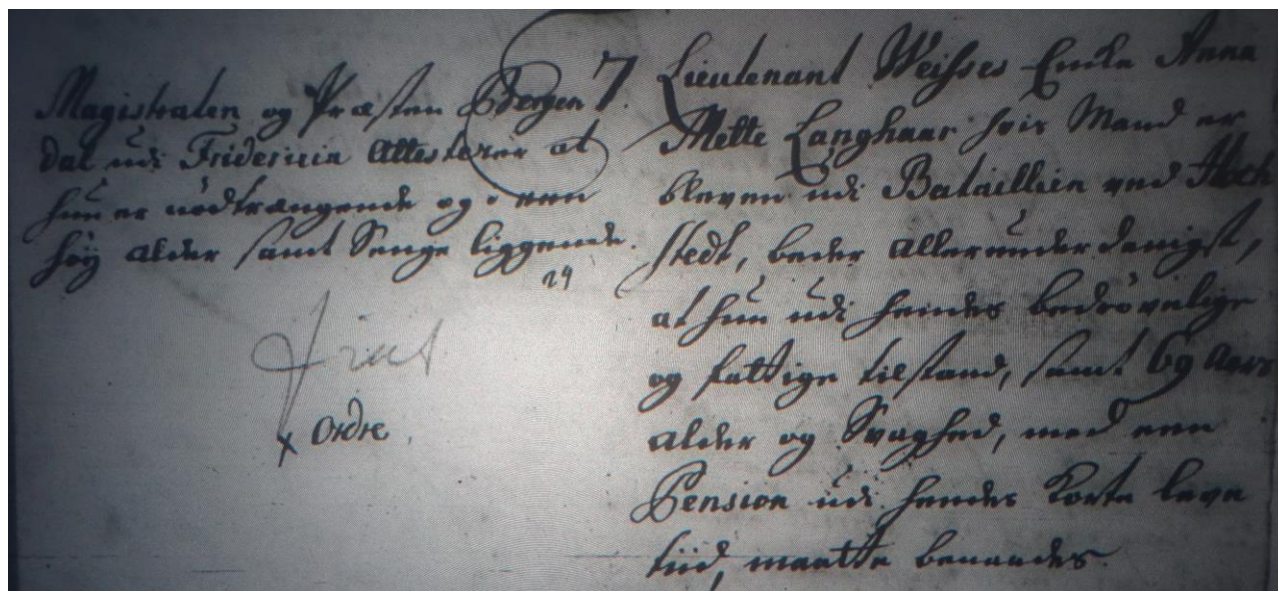 Magistraten og Præsten Bergen
dal udi Fridericia Attesterer at
hun er nødtrængende og i een
høy alder samt Senge liggende.
24
x Ordre.
7. Lieutenant Weisses Encke Anna
Mette Langhaar hvis Mand er
bleven udi Bataillien ved Hoch
stedt, beder allerunderdanigst,
at hun udi hendes bedrøvelige
og fattige tilstand, samt 69 Aars
alder og Svaghed, med een
Pension udi hendes korte leve
tiid, maatte benaades.